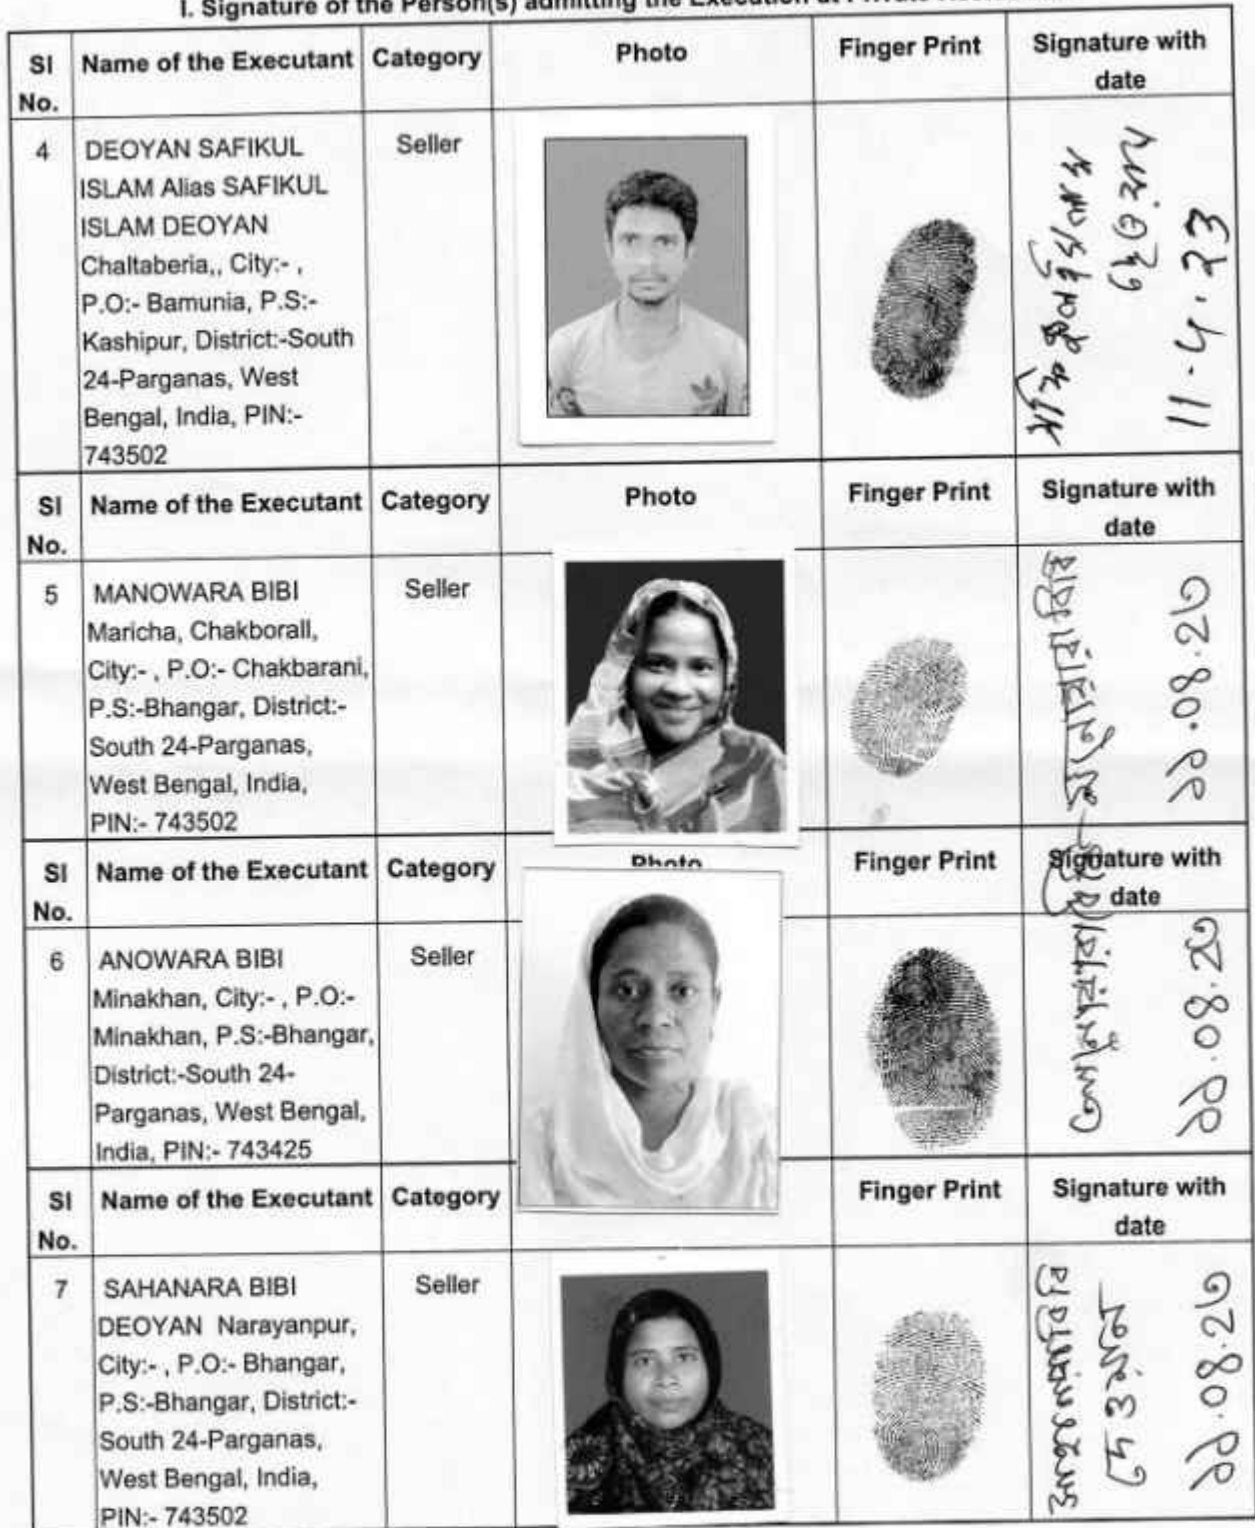 I. Signature of the Person(s) admitting the Execution at Private
Sl No. Name of the Executant Category Photo Finger Print Signature with date
4 DEOYAN SAFIKUL Seller
ISLAM Alias SAFIKUL
ISLAM DEOYAN
Chaltaberia,, City:- ,
P.O:- Bamunia, P.S:-
Kashipur, District:-South
24-Parganas, West
Bengal, India, PIN:-
743502
11.4.23
Sl No. Name of the Executant Category Photo Finger Print Signature with date
5 MANOWARA BIBI Seller
Maricha, Chakborall,
City:- , P.O:- Chakbarani,
P.S:-Bhangar, District:-
South 24-Parganas,
West Bengal, India,
PIN:- 743502
১১.০৪.২৩
Sl No. Name of the Executant Category Photo Finger Print Signature with date
6 ANOWARA BIBI Seller
Minakhan, City:- , P.O:-
Minakhan, P.S:-Bhangar,
District:-South 24-
Parganas, West Bengal,
India, PIN:- 743425
১১.০৪.২৩
Sl No. Name of the Executant Category Finger Print Signature with date
7 SAHANARA BIBI Seller
DEOYAN Narayanpur,
City:- , P.O:- Bhangar,
P.S:-Bhangar, District:-
South 24-Parganas,
West Bengal, India,
PIN:- 743502
১১.০৪.২৩